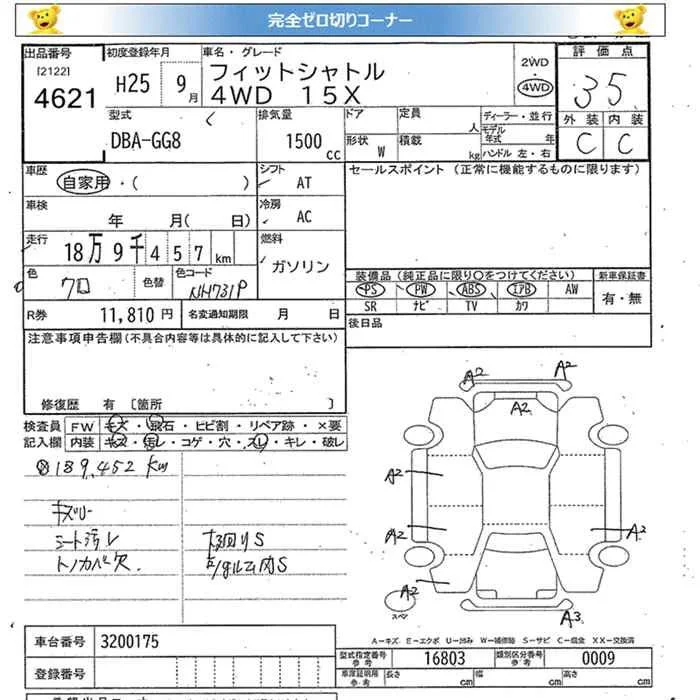 完全ゼロ切りコーナー
出品番号
[2122]
4621
初度登録年月
H25 9月
車名・グレード
フィットシャトル
4WD 15X
2WD
・
4WD
評価点
3.5
外装 内装
C C
型式
DBA-GG8
排気量
1500 cc
ドア
定員
人
形状
W
積載
kg
ディーラー・並行
モデル年式 年
ハンドル 左・右
車歴
自家用・( )
シフト
AT
セールスポイント (正常に機能するものに限ります)
車検
年 月( 日)
冷房
AC
走行
18万9千457km
燃料
ガソリン
色
クロ
色替
色コード
NH731P
装備品(純正品に限り○をつけてください)
PS PW ABS エアB AW
SR ナビ TV カワ
新車保証書
有・無
R券
11,810 円
名変通知期限 月 日
後日品
注意事項申告欄(不具合内容等は具体的に記入して下さい)
修復歴 有 [箇所 ]
検査員
記入欄
FW キズ・飛石・ヒビ割・リペア跡・×要
内装 キズ・汚レ・コゲ・穴・スレ・キレ・破レ
189,452 km
キズリー
シート汚レ
トノカバー欠.
下回りS
E/gルーム内S
A2 A2
A2
A2
A2 A2
A2
A3
スペア
A-キズ E-エクボ U-凹み W-補修跡 S-サビ C-腐食 XX-交換済
車台番号
3200175
登録番号
型式指定番号
参考
16803
類別区分番号
参考
0009
車庫証明用
参考
長さ cm
幅 cm
高さ cm